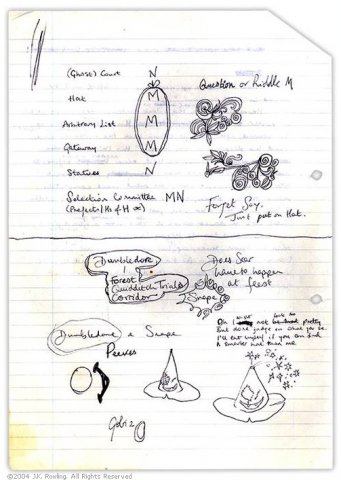 (Ghost) Court N
Hat M
Question or Riddle M
Arbitrary List M
Gateway M
Statues N
Selection Committee MN
(Prefects/ Hs of H
Forget Say.
Just put on Hat.
Dumbledore
Forest
Quidditch Trials
Corridor
Snape
Does Scar
have to happen
at feast
Dumbledore & Snape
Peeves
Oh I may not be pretty
But don't judge on what you see
I'll eat myself if you can find
A smarter hat than me
©2004 J.K. Rowling. All Rights Reserved